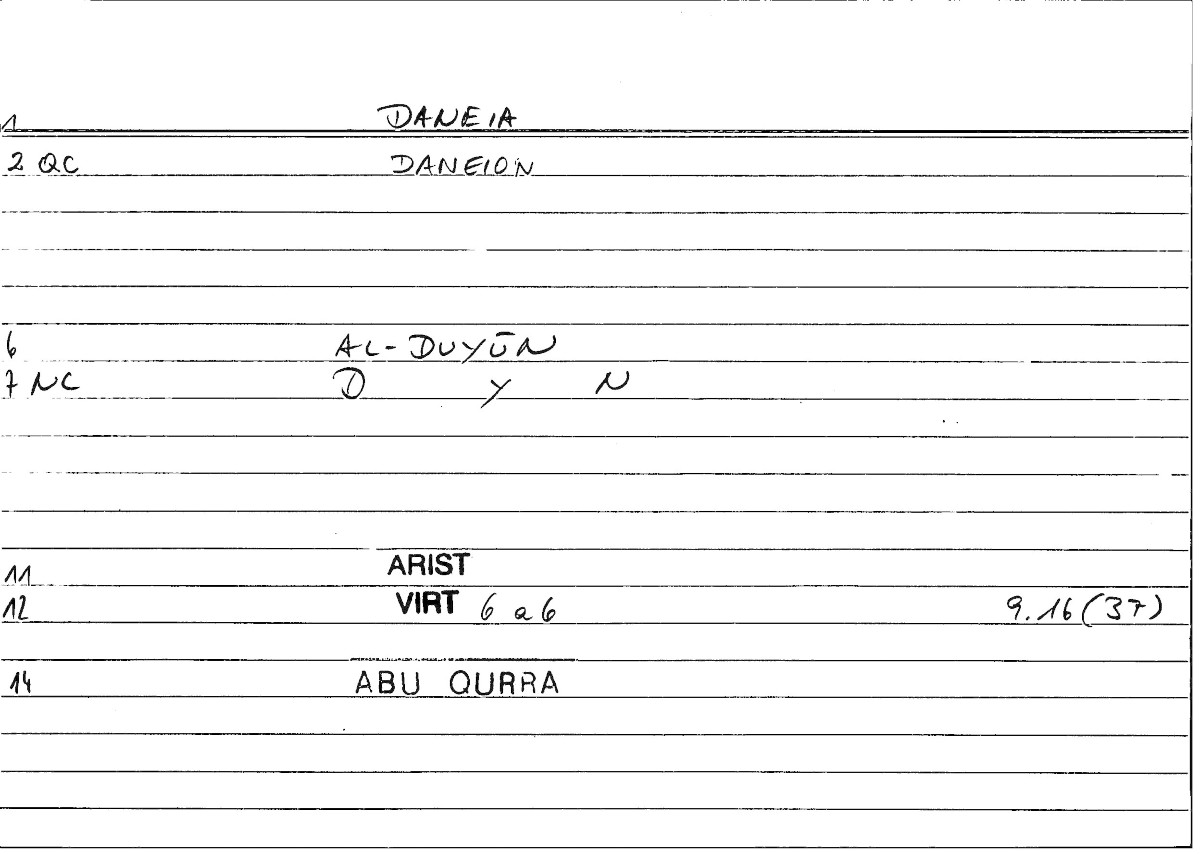 1 DANEIA
2 QC DANEION
6 AL-DUYŪN
7 NC D Y N
11 ARIST
12 VIRT 6 a 6 9.16 (37)
14 ABU QURRA